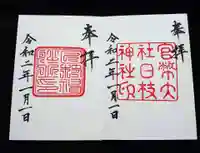 奉拝
官幣大
社日枝
神社印
令和二年一月一日
奉拝
令和二年一月一日